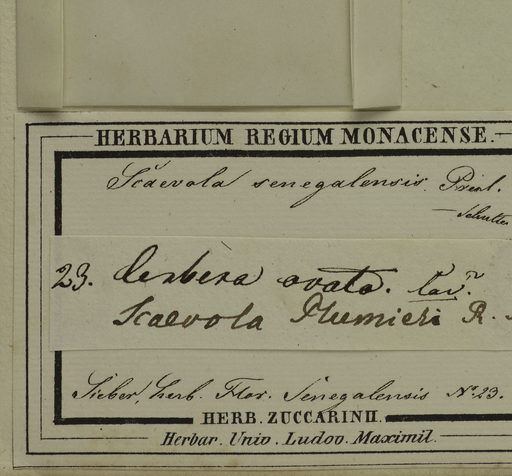 HERBARIUM REGIUM MONACENSE.
Scaevola senegalensis Presl.
Schultes
23. Cerbera ovata. Cav.
Scaevola Plumieri R.
Sieber, herb. Flor. Senegalensis No. 23.
HERB. ZUCCARINII.
Herbar. Univ. Ludov. Maximil.